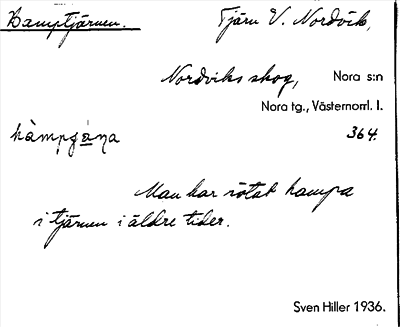 Kamptjärnen. Tjärn V. Nordvik,
Nordviks skog, Nora s:n
Nora tg., Västernorrl. l.
364.
Man har rötat hampa
i tjärnen i äldre tider.
Sven Hiller 1936.